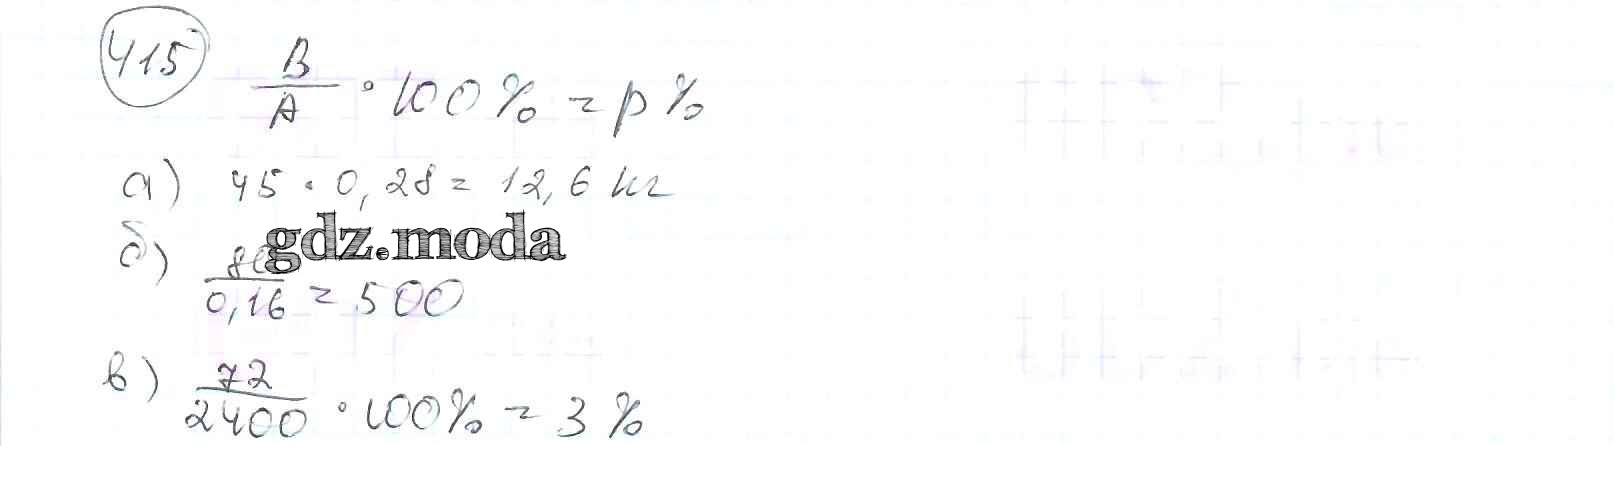 415
B/A · 100% = p%
а) 45 · 0,28 = 12,6 кг
gdz.moda
б) /0,16 = 500
в) 72/2400 · 100% = 3%